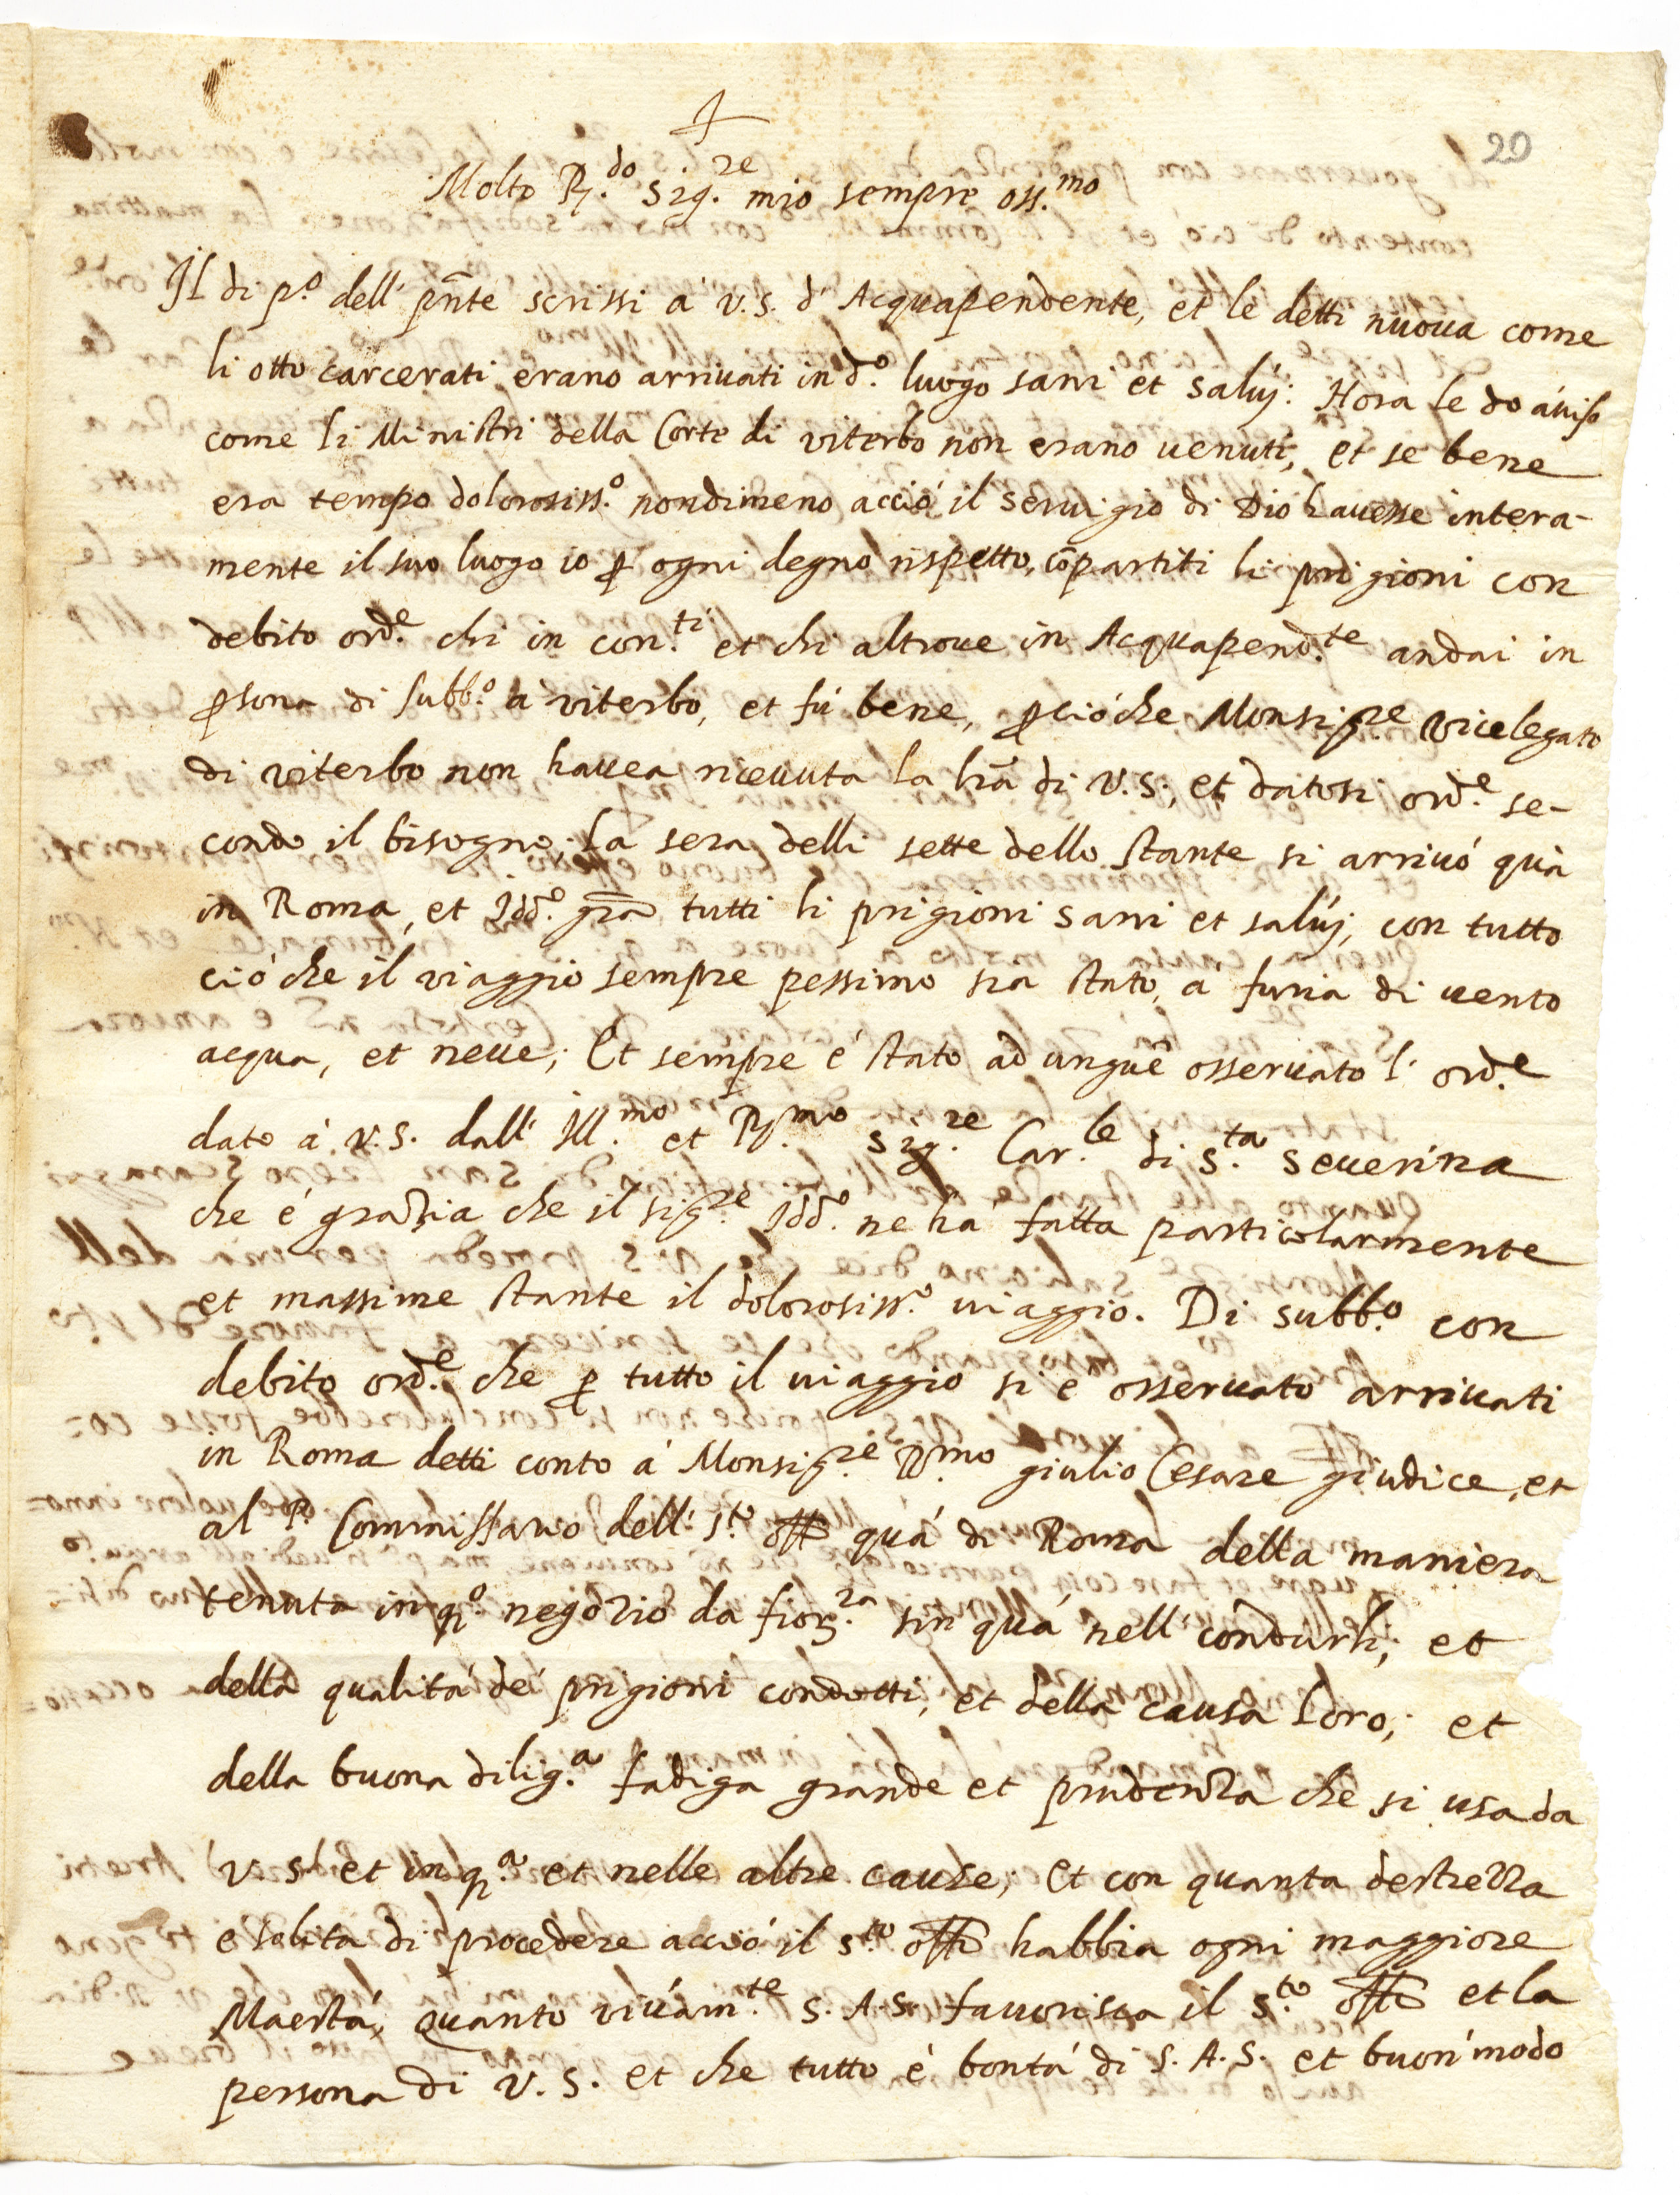 20
Molto R.do Sig.re mio sempre oss.mo
Il di p.o dell' pn̄te scrissi á v.s. d' Acquapendente, et le detti nuova come
li otto carcerati erano arrivati in d.o luogo sani et salvi: Hora le do aviso
come li Ministri della Corte di viterbo non erano venuti, et se bene
era tempo dolorosiss.o nondimeno acció il servigio di Dio havesse intera-
mente il suo luogo io ꝑ ogni degno rispetto, cōpartiti li prigioni con
debito ord.e chi in con.ti et chi altrove in Acquapend.te andai in
ꝑsona di subb.o á viterbo, et fú bene, ꝑcióche Monsig.re vicelegato
di viterbo non havea ricevuta la lr̄a di v.s., et datosi ord.e se-
condo il bisogno, la sera delli sette dello stante si arrivó quà
in Roma, et Idd.o gr̄a tutti li prigioni sani et salvi, con tutto
ció che il viaggio sempre pessimo sia stato, a furia di vento
acqua, et neve; Et sempre é stato ad unguē osservato l' ord.e
dato á v.s. dall' Ill.mo et R.mo Sig.re Car.le di S.ta Severina
che é grazia che il sig.re Idd.o ne há fatta particolarmente
et massime stante il dolorosiss.o viaggio. Di subb.o con
debito ord.e che ꝑ tutto il viaggio si é osservato arrivati
in Roma detti conto á Monsig.re R.mo giulio Cesare giudice, et
al P. Commissario dell' S.to offo quá di Roma della maniera
tenuta in q.o negozio da fior.za sin quá nell' condurli; et
della qualitá dé prigioni condotti, et della causa loro; et
della buona dilig.a fadiga grande et prudenza che si usa da
v.s. et in q.a et nelle altre cause; Et con quanta destrezza
e solita di procedere acció il S.to offo habbia ogni maggiore
Maestá, quanto vivam.te S.A.S. favorisca il S.to offo et la
persona di v.s. et che tutto é bontá di S.A.S. et buon modo